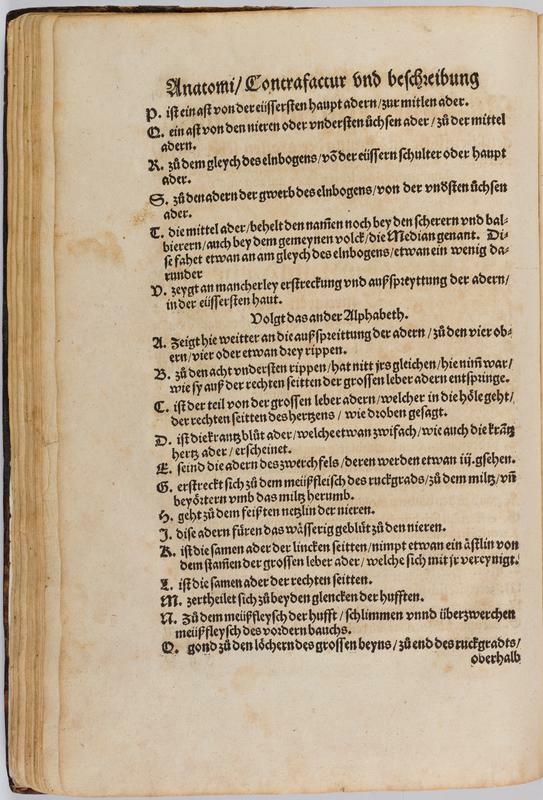 Anatomi/ Contrafactur vnd beschreibung
P. ist ein ast von der eüssersten haupt adern/zur mitlen ader.
Q. ein ast von den nieren oder vndersten üchsen ader/zů der mittel
adern.
R. zů dem gleych des elnbogens/võ der eüssern schulter oder haupt
ader.
S. zů den adern der gwerb des elnbogens/von der vnd̾sten üchsen
ader.
T. die mittel ader/behelt den nam̃en noch bey den scherern vnd bal-
bierern/auch bey dem gemeynen volck/die Median genant. Di-
se fahet etwan an am gleych des elnbogens/etwan ein wenig da-
runder
V. zeygt an mancherley erstreckung vnd außspreyttung der adern/
in der eüssersten haut.
Volgt das ander Alphabeth.
A. Zeigt hie weitter an die außspreittung der adern/zů den vier ob-
ern/vier oder etwan drey rippen.
B. zů den acht vndersten rippen/hat nitt jrs gleichen/hie nim̃ war/
wie sy auß der rechten seitten der grossen leber adern entspringe.
C. ist der teil von der grossen leber adern/welcher in die höle geht/
der rechten seitten des hertzens / wie droben gesagt.
D. ist die krantz blůt ader/welche etwan zwifach/wie auch die krãtz
hertz ader/erscheinet.
E. seind die adern des zwerchfels/deren werden etwan iij. gsehen.
G. erstreckt sich zů dem meüßfleisch des ruckgrads/zů dem miltz/vñ
beyörtern vmb das miltz herumb.
H. geht zů dem feißten netzlin der nieren.
I. dise adern füren das wässerig geblůt zů den nieren.
K. ist die samen ader der lincken seitten/nimpt etwan ein ästlin von
dem stam̃en der grossen leber ader/welche sich mit jr vereynigt.
L. ist die samen ader der rechten seitten.
M. zertheilet sich zů beyden glencken der hufften.
N. Zů dem meüßfleysch der hufft/schlimmen vnnd überzwerchen
meüßfleysch des vordern bauchs.
O. gond zů den löchern des grossen beyns/zů end des ruckgradts/
oberhalb